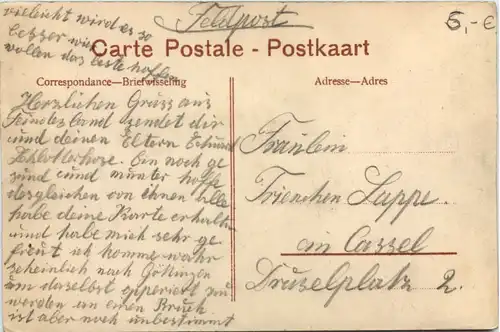 vieleicht wird es so
besser wir
wollen das beste hoffen
Feldpost
5,-€
Carte Postale - Postkaart
Correspondance—Briefwisseling
Adresse—Adres
Herzlichen Gruss aus
Feindesland sendet dir
und deinen Eltern
Bin noch ge
sund und munter hoffe
desgleichen von ihnen alle
habe deine Karte erhalten
und habe mich sehr ge
freut ich komme wahr
scheinlich nach Göttingen
um daselbst operiert zu
werden an einen Bruch
ist aber noch unbestimmt
Fräulein
Frienchen Lappe
in Cassel
Druselplatz 2.